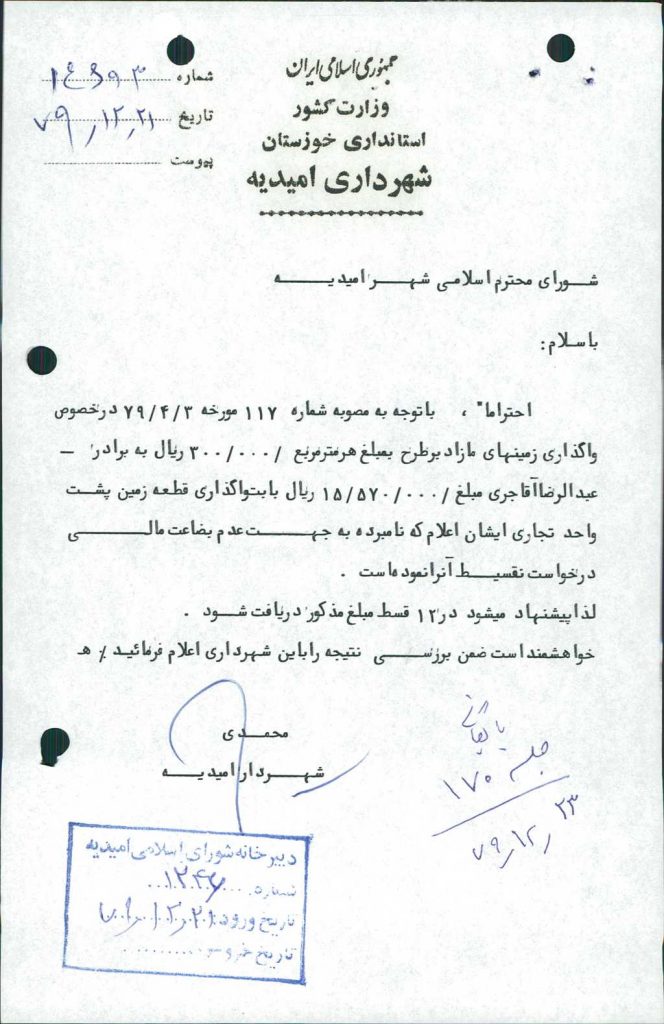 جمهوری اسلامی ایران
وزارت کشور
استانداری خوزستان
شهرداری امیدیه
شماره
تاریخ ۷۹٫۱۲٫۲۱
پیوست
شورای محترم اسلامی شهر امیدیه
باسلام:
احتراما"، باتوجه به مصوبه شماره ۱۱۷ مورخه ۷۹/۴/۳ درخصوص
واگذاری زمینهای مازاد برطرح بمبلغ هرمترمربع /۳۰۰/۰۰۰ ریال به برادر ـ
عبدالرضا آقاجری مبلغ /۱۵/۵۷۰/۰۰۰ ریال بابت واگذاری قطعه زمین پشت
واحد تجاری ایشان اعلام که نامبرده به جهت عدم بضاعت مالی
درخواست تقسیط آنرا نموده است .
لذا پیشنهاد میشود در ۱۲ قسط مبلغ مذکور دریافت شود .
خواهشمند است ضمن بررسی نتیجه را باین شهرداری اعلام فرمائید ٪ هـ
محمدی
شهردار امیدیه
بایگانی
جلسه ۱۷۰
۷۹٫۱۲٫۲۳
دبیرخانه شورای اسلامی امیدیه
شماره
تاریخ ورود ۷۹٫۱۲٫۲۱
تاریخ خروج